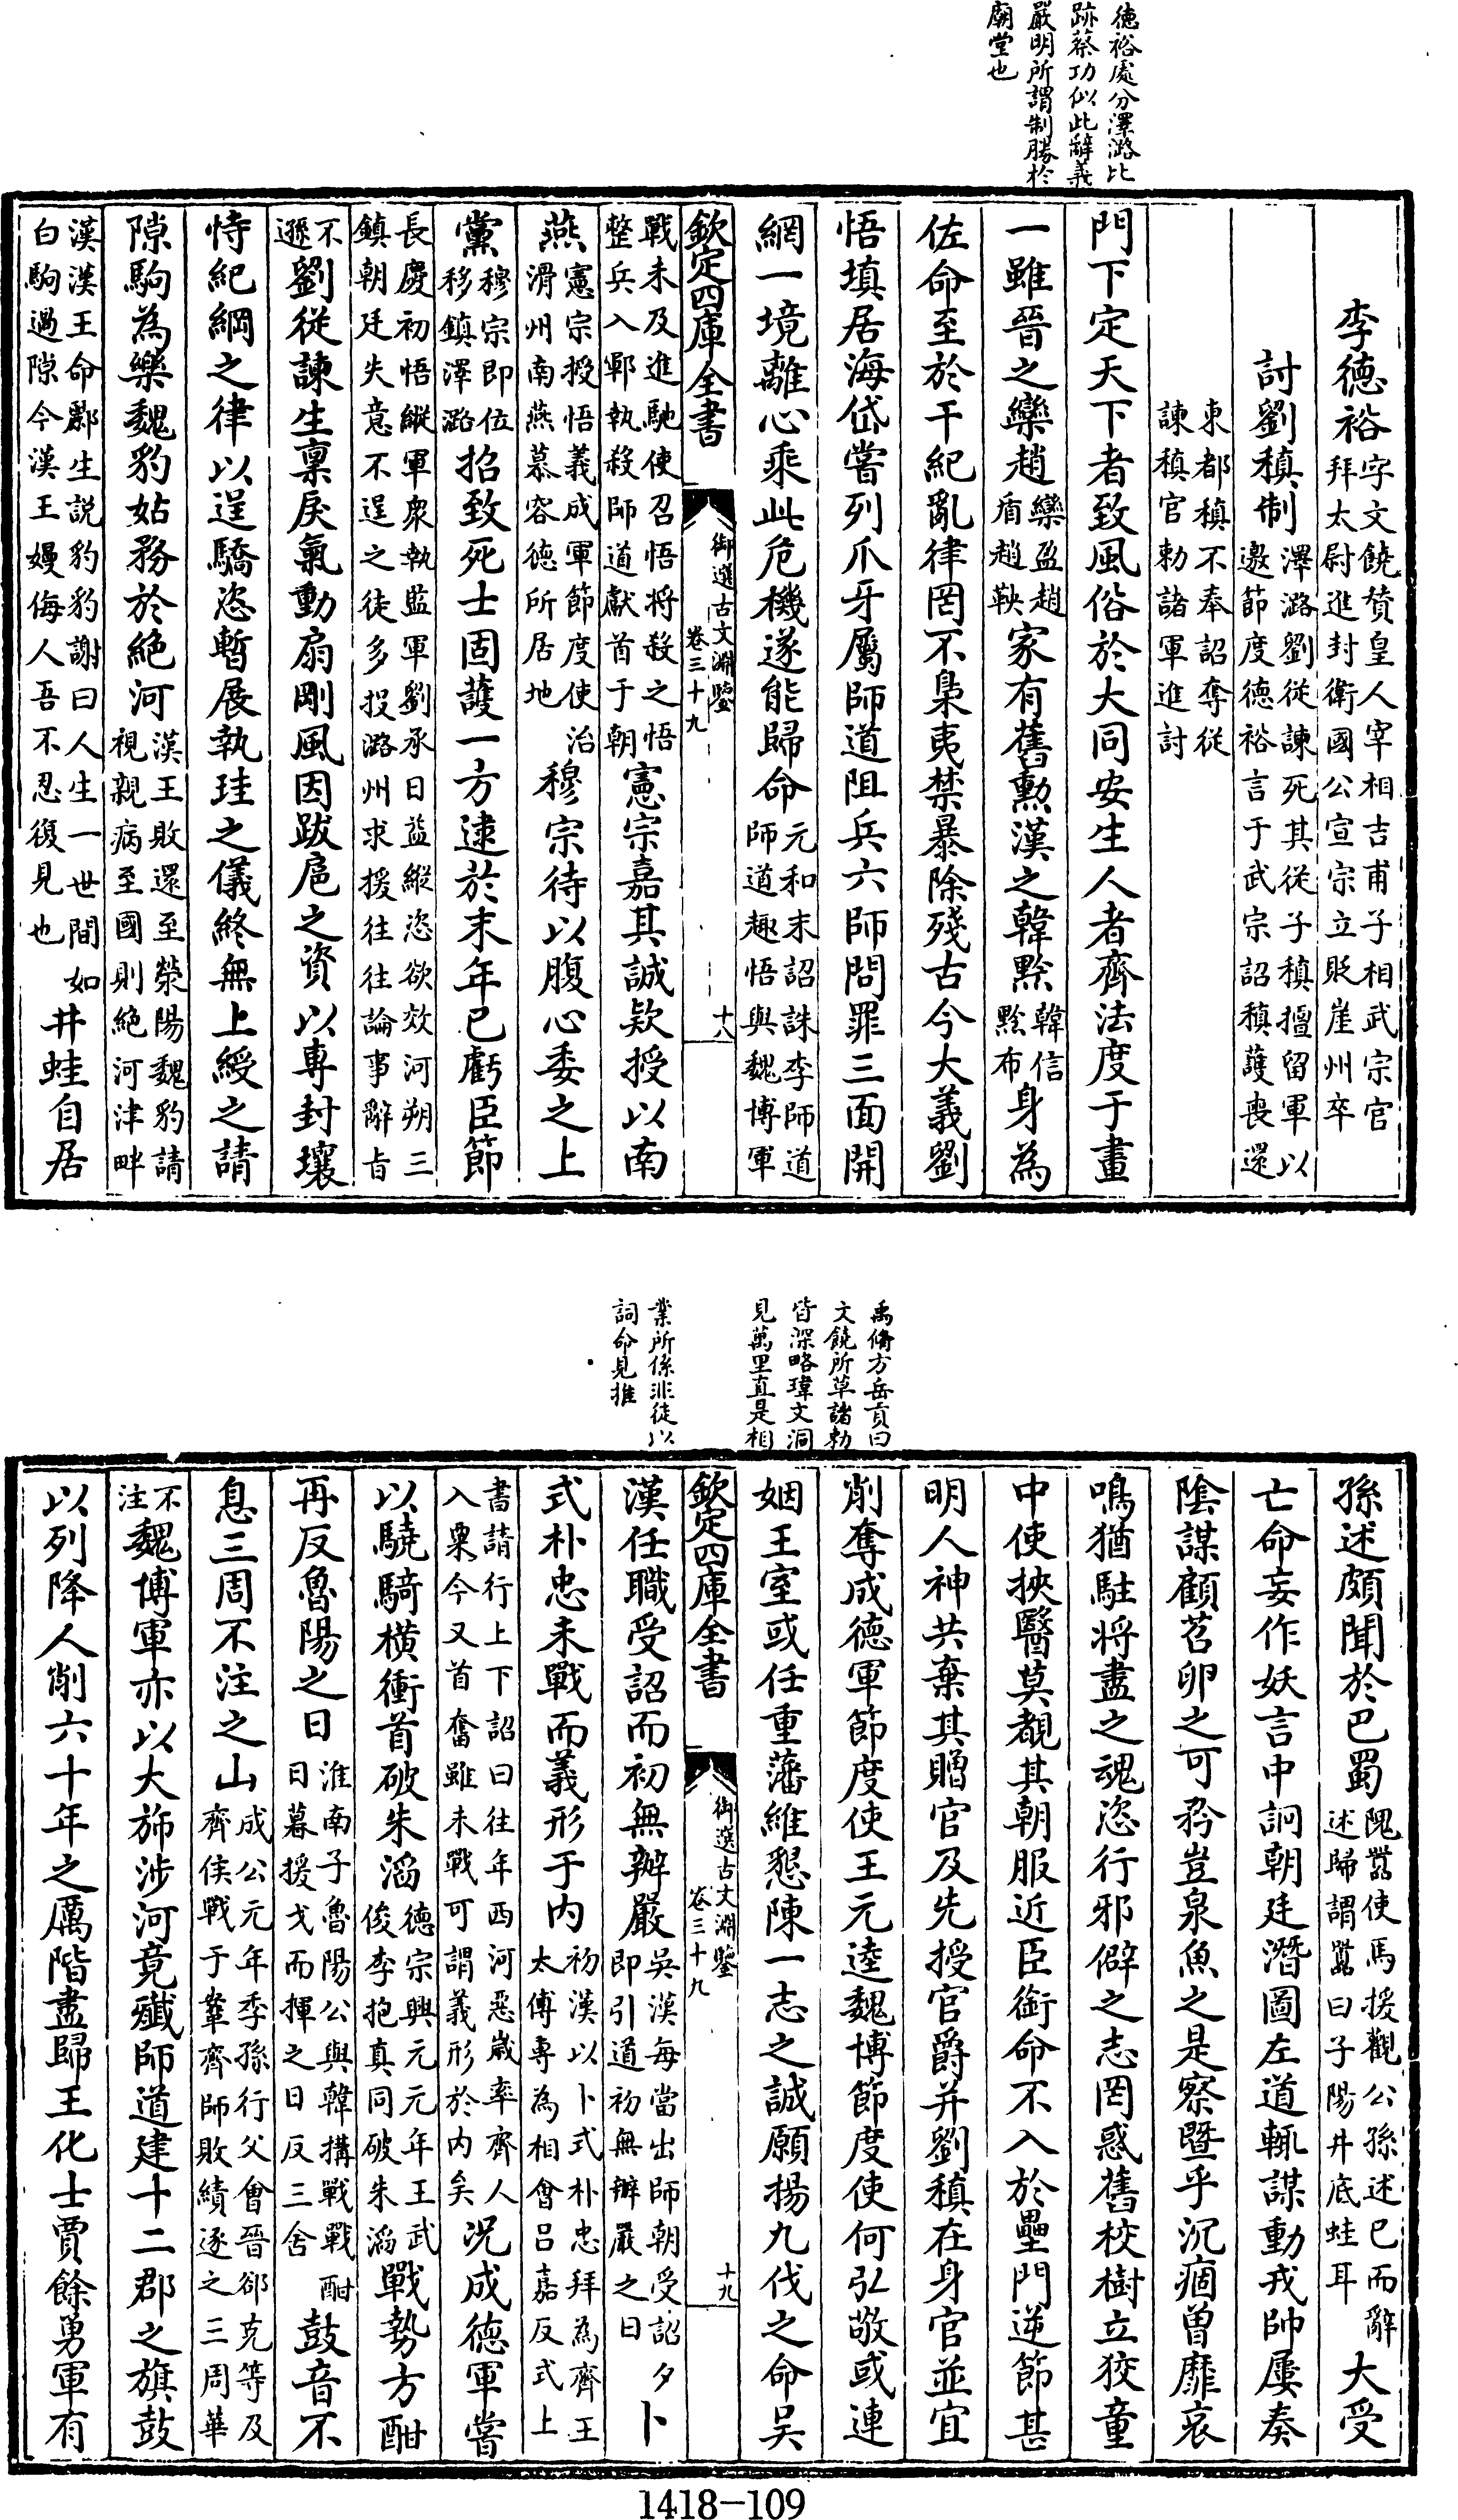 德裕處分澤潞比
跡蔡功似此辭義
嚴明所謂制勝於
廟堂也
李德裕字文饒贊皇人宰相吉甫子相武宗官
拜太尉進封衛國公宣宗立貶崖州卒
討劉稹制澤潞劉從諫死其從子稹擅留軍以
邀節度德裕言于武宗詔稹護喪還
東都稹不奉詔奪從
諫稹官勅諸軍進討
門下定天下者致風俗於大同安生人者齊法度于畫
一雖晉之欒趙欒盈趙
盾趙鞅家有舊勲漢之韓黥韓信
黥布身為
佐命至於干紀亂律罔不梟夷禁暴除殘古今大義劉
悟填居海岱嘗列爪牙屬師道阻兵六師問罪三面開
網一境離心乘此危機遂能歸命元和末詔誅李師道
師道趣悟與魏博軍
欽定四庫全書
御選古文淵鑒
卷三十九
十八
戰未及進馳使召悟將殺之悟
整兵入鄆執殺師道獻首于朝憲宗嘉其誠欵授以南
燕憲宗授悟義成軍節度使治
滑州南燕慕容德所居地穆宗待以腹心委之上
黨穆宗即位
移鎮澤潞招致死士固護一方逮於末年已虧臣節
長慶初悟縱軍衆執監軍劉承日益縱恣欲效河朔三
鎮朝廷失意不逞之徒多投潞州求援往往論事辭旨
不
遜劉從諫生稟戾氣動扇剛風因跋扈之資以專封壤
恃紀綱之律以逞驕恣暫展執珪之儀終無上綬之請
隙駒為樂魏豹姑務於絕河漢王敗還至滎陽魏豹請
視親病至國則絕河津畔
漢漢王命酈生説豹豹謝曰人生一世間如
白駒過隙今漢王嫚侮人吾不忍復見也井蛙自居
禹脩方岳貢曰
文饒所草諸勅
皆深略瑋文洞
見萬里直是相
業所係非徒以
詞命見推
孫述頗聞於巴蜀隗囂使馬援觀公孫述已而辭
述歸謂囂曰子陽井底蛙耳大受
亡命妄作妖言中詗朝廷潛圖左道輒謀動戎帥屢奏
陰謀顧苕卵之可矜豈泉魚之是察暨乎沉痼曽靡哀
鳴猶駐將盡之魂恣行邪僻之志罔惑舊校樹立狡童
中使挾醫莫覩其朝服近臣銜命不入於壘門逆節甚
明人神共棄其贈官及先授官爵并劉稹在身官並宜
削奪成德軍節度使王元逵魏博節度使何弘敬或連
姻王室或任重藩維懇陳一志之誠願揚九伐之命吴
欽定四庫全書
御選古文淵鑒
卷三十九
十九
漢任職受詔而初無辦嚴吴漢每當出師朝受詔夕
即引道初無辦嚴之日卜
式朴忠未戰而義形于内初漢以卜式朴忠拜為齊王
太傅專為相會吕嘉反式上
書請行上下詔曰往年西河惡嵗率齊人
入粟今又首奮雖未戰可謂義形於内矣况成德軍嘗
以驍騎横衝首破朱滔德宗興元元年王武
俊李抱真同破朱滔戰勢方酣
再反魯陽之日淮南子魯陽公與韓搆戰戰酣
日暮援戈而揮之日反三舍鼓音不
息三周不注之山成公元年季孫行父會晉郤克等及
齊侯戰于鞌齊師敗績逐之三周華
不
注魏博軍亦以大斾涉河竟殱師道建十二郡之旗鼓
以列降人削六十年之厲階盡歸王化士賈餘勇軍有
1418-109